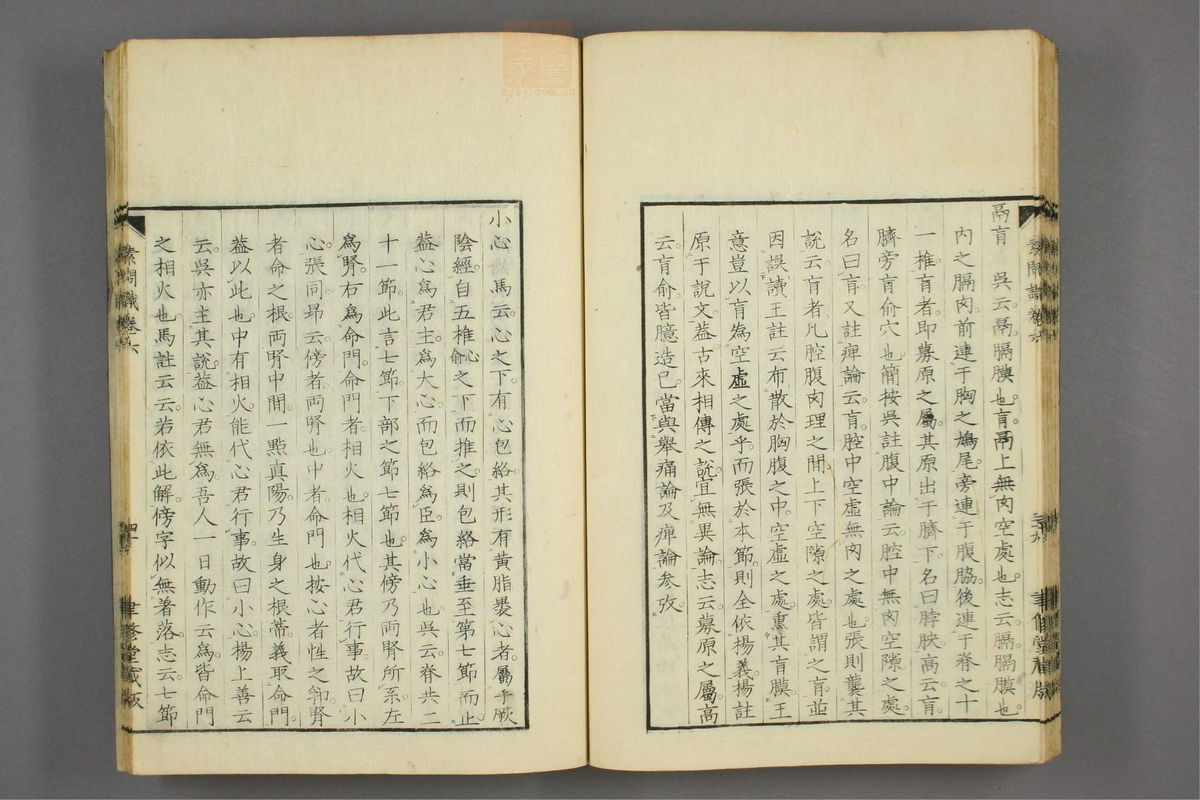 鬲肓　吳云鬲膈膜也肓鬲上無肉空處也志云膈膈膜也
內之膈肉前連于胸之鳩尾旁連于腹脇後連于脊之十
一椎肓者即募原之屬其原出于臍下名曰脖胦高云肓
臍旁肓俞穴也簡按吳註腹中論云腔中無肉空隙之處
名曰肓又註痺論云肓腔中空虛無肉之處也張則襲其
說云肓者凡腔腹肉理之間上下空隙之處皆謂之肓並
因誤讀王註云布散於胸腹之中空虛之處熏其肓膜王
意豈以肓為空虛之處乎而張於本節則全依楊義楊註
原于說文葢古來相傳之說宜無異論志云募原之屬高
云肓俞皆臆造已當與舉痛論及痺論參攷
小心　馬云心之下有心包絡其形有黃脂裹心者屬手厥
陰經自五椎心俞之下而推之則包絡當垂至第七節而止
葢心為君主為大心而包絡為臣為小心也吳云脊共二
十一節此言七節下部之節七節也其傍乃兩腎所系左
為腎右為命門命門者相火也相火代心君行事故曰小
心張同昻云傍者兩腎也中者命門也按心者性之郛腎
者命之根兩腎中間一點真陽乃生身之根蔕義取命門
葢以此也中有相火能代心君行事故曰小心楊上善云
云吳亦主其說葢心君無為吾人一日動作云為皆命門
之相火也馬註云云若依此解傍字似無著落志云七節
素問識卷六
聿修堂藏版
zysj.com.cn